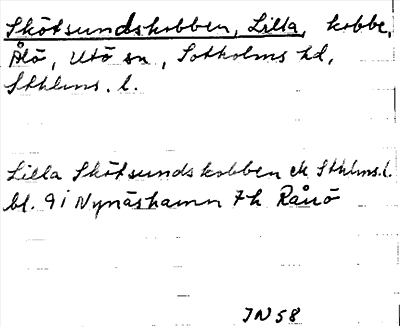 Skötsundskobben, Lilla, kobbe,
Ålö, Utö sn, Sotholms hd,
Sthlms. l.
Lilla Skötsundskobben ek Sthlms.l.
bl. 9i Nynäshamn 7h Rånö
IN58